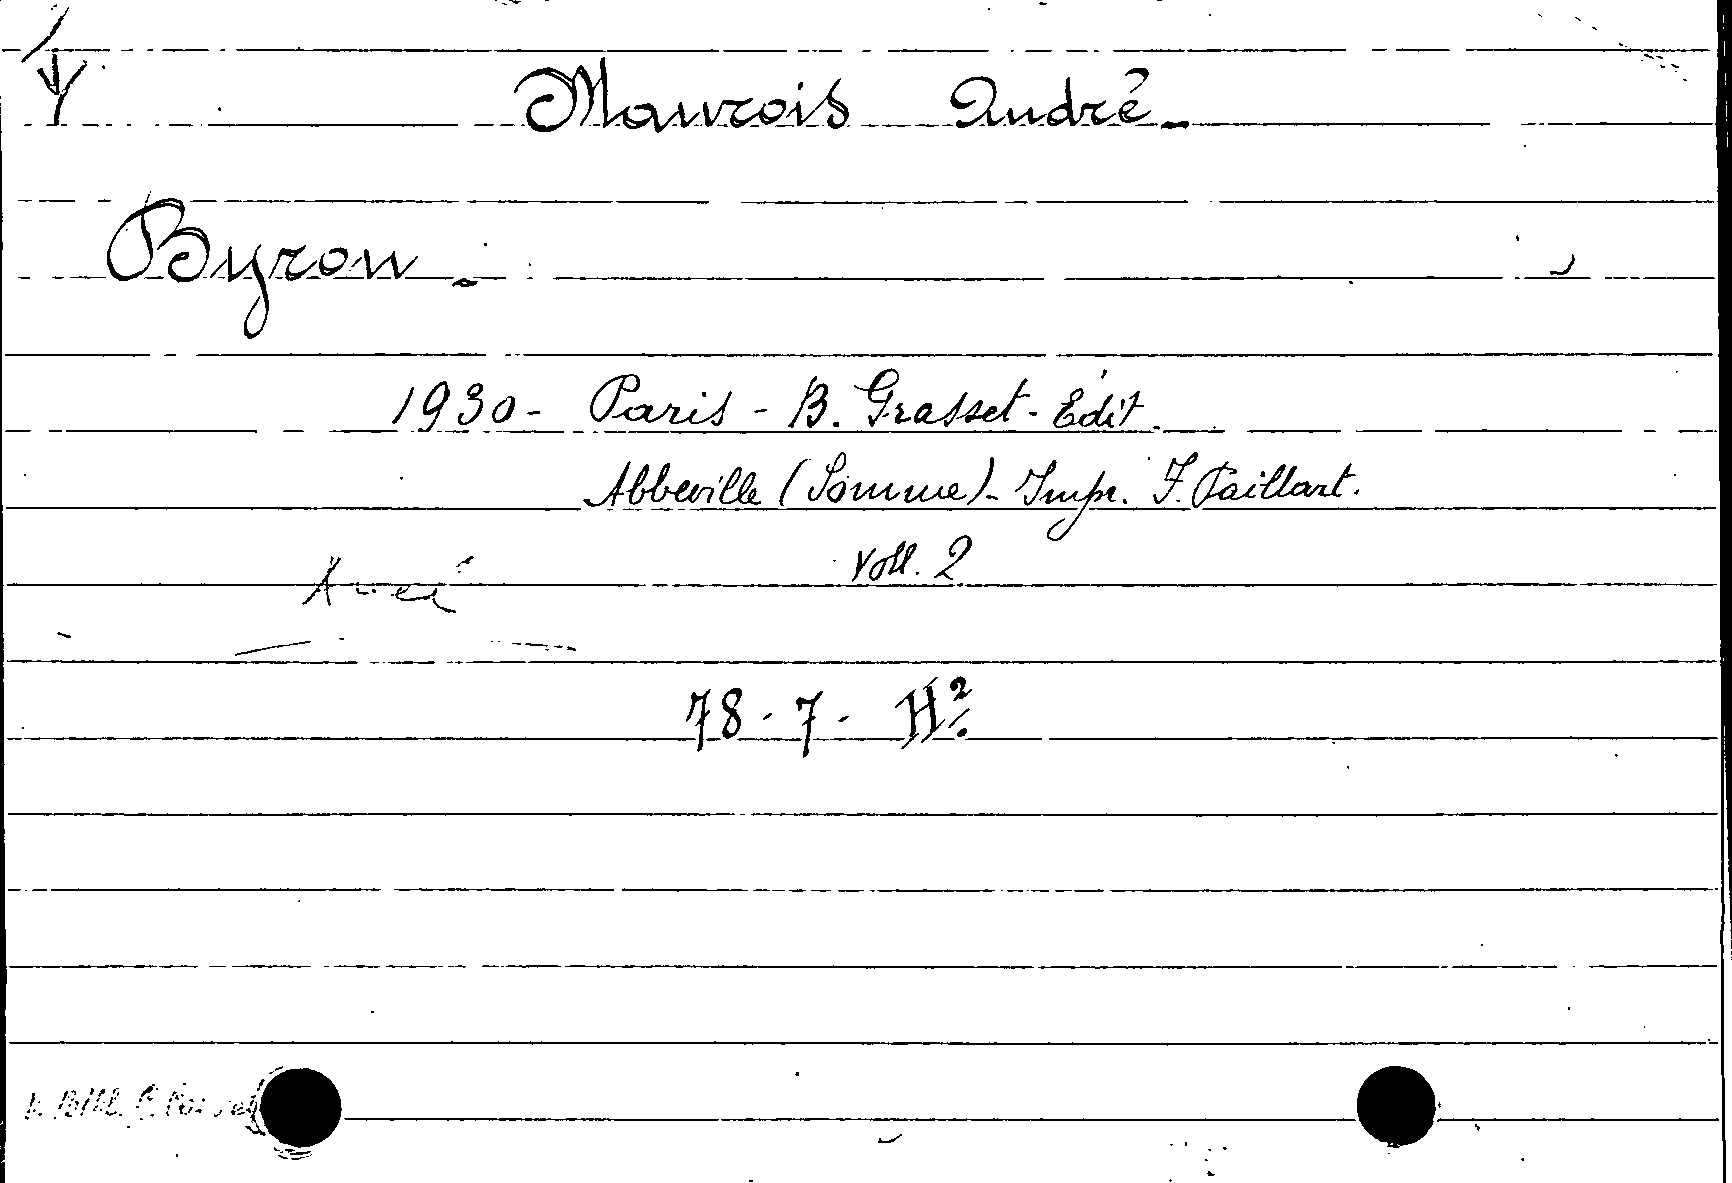 Maurois André -
Byron -
1930 - Paris - B. Grasset - Edit.
Abbeville (Somme) - Impr. F. Paillart.
Voll. 2
78 - 7 - H².